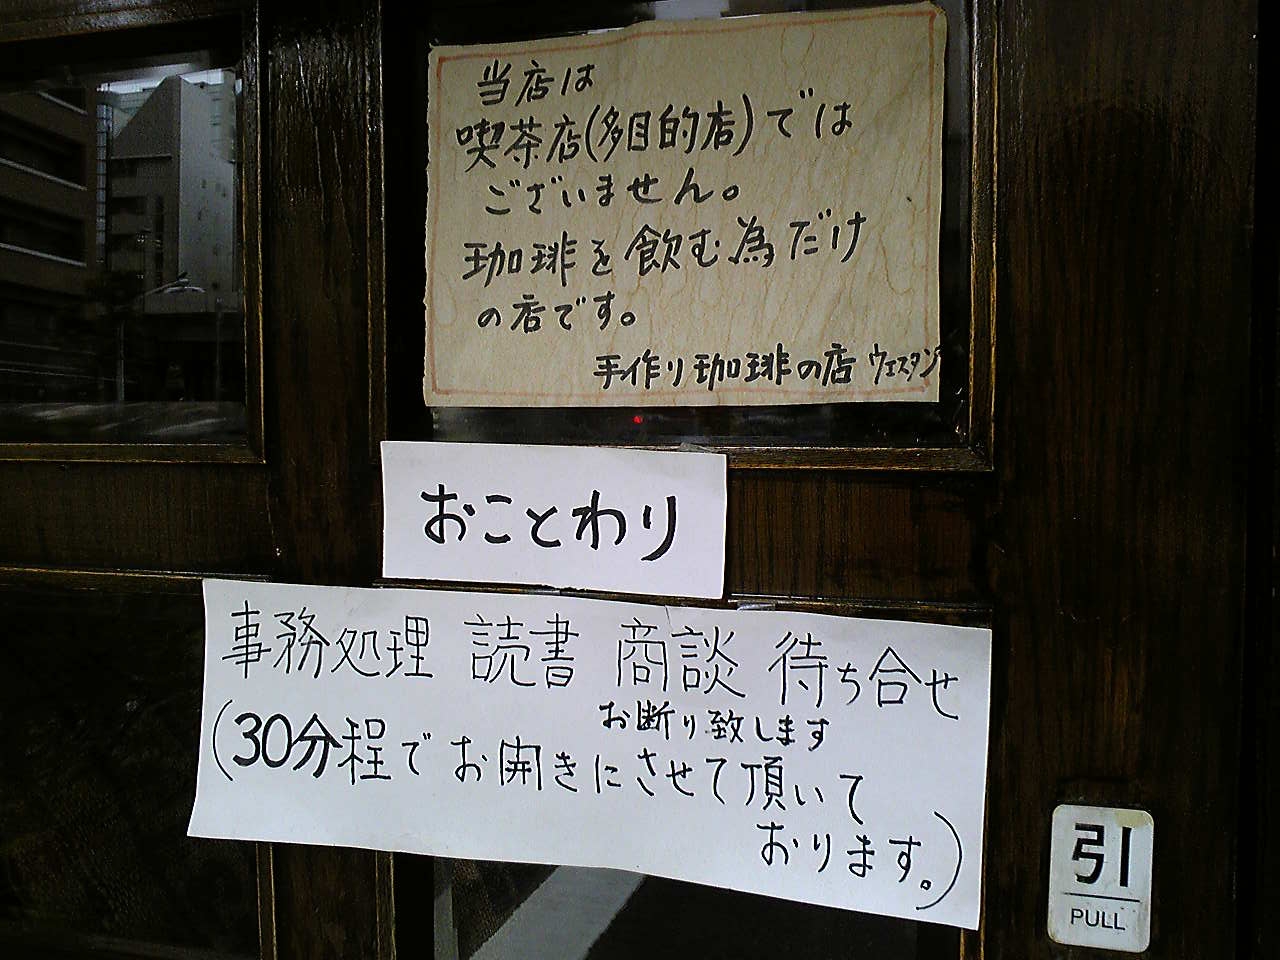 当店は
喫茶店(多目的店)では
ございません。
珈琲を飲む為だけ
の店です。
手作り珈琲の店 ウエスタン
おことわり
事務処理 読書 商談 待ち合せ
お断り致します
(30分程でお開きにさせて頂いて
おります。)
引
PULL